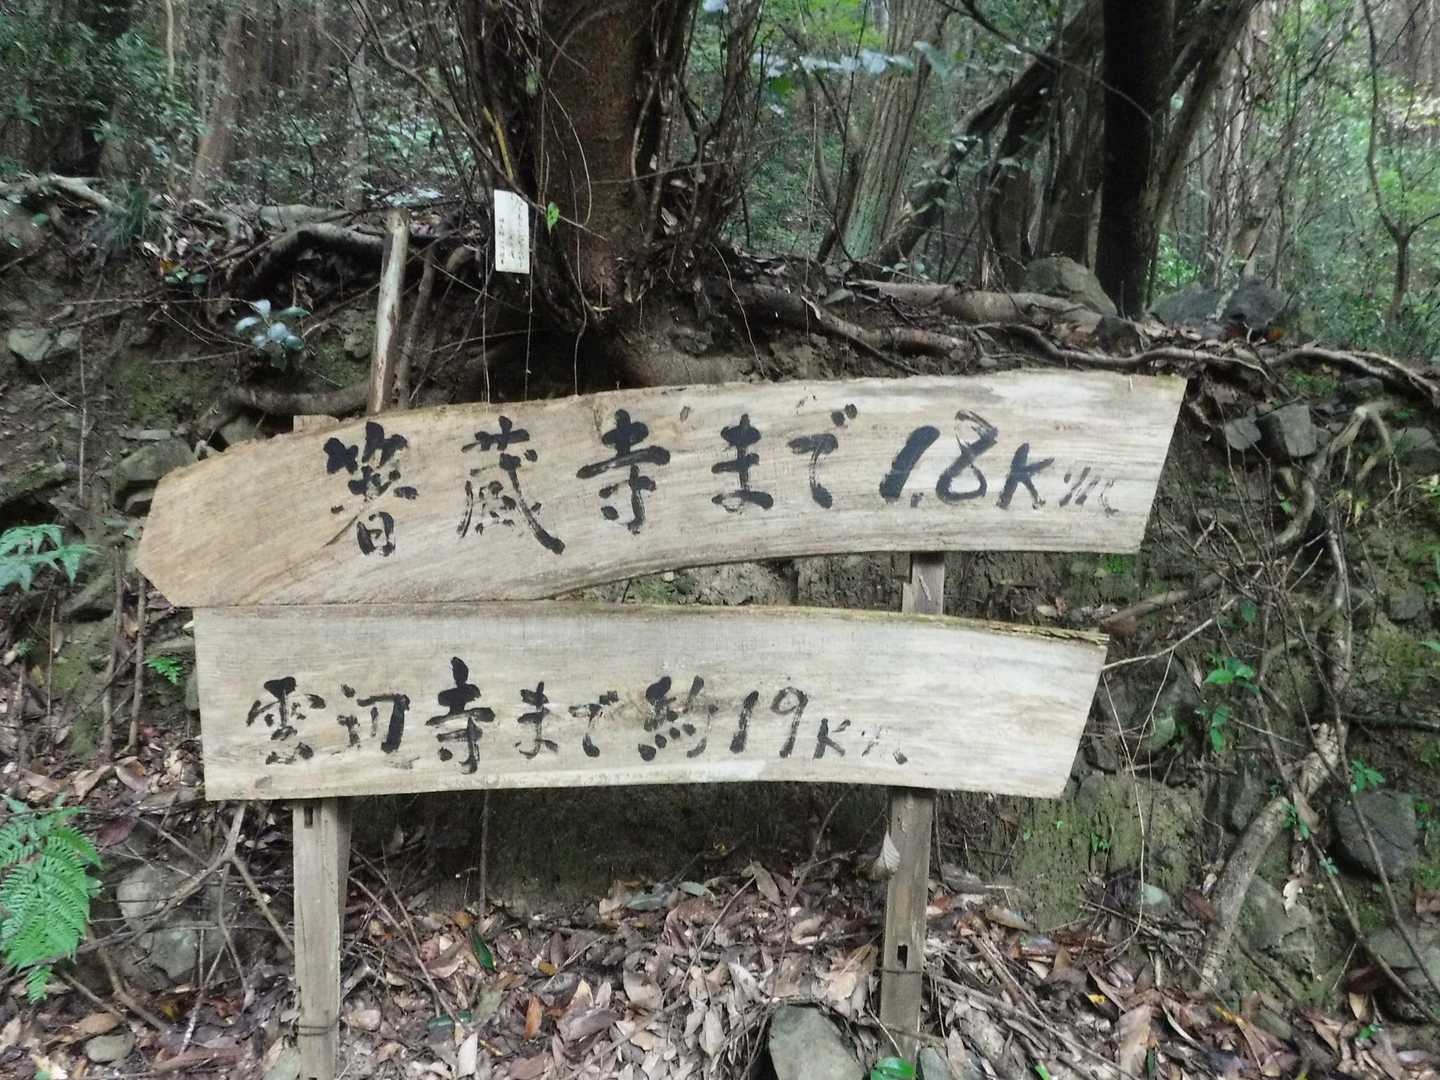 箸蔵寺まで1.8Km
雲辺寺まで約19Km